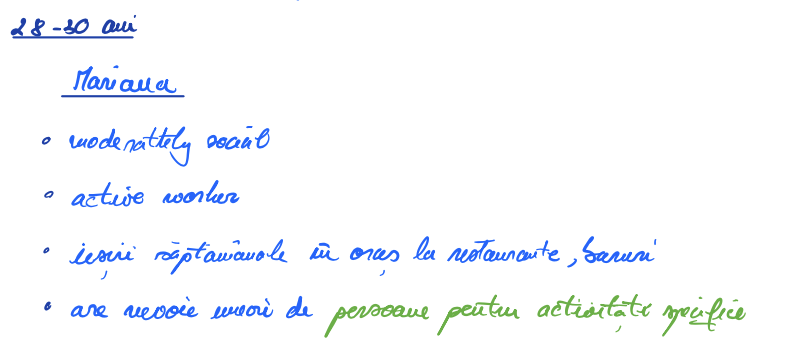 28-30 ani
Mariana
• moderattely sociăl
• active worker
• ieșiri săptămânale în oraș la restaurante, baruri
• are nevoie uneori de persoane pentru activități specifice